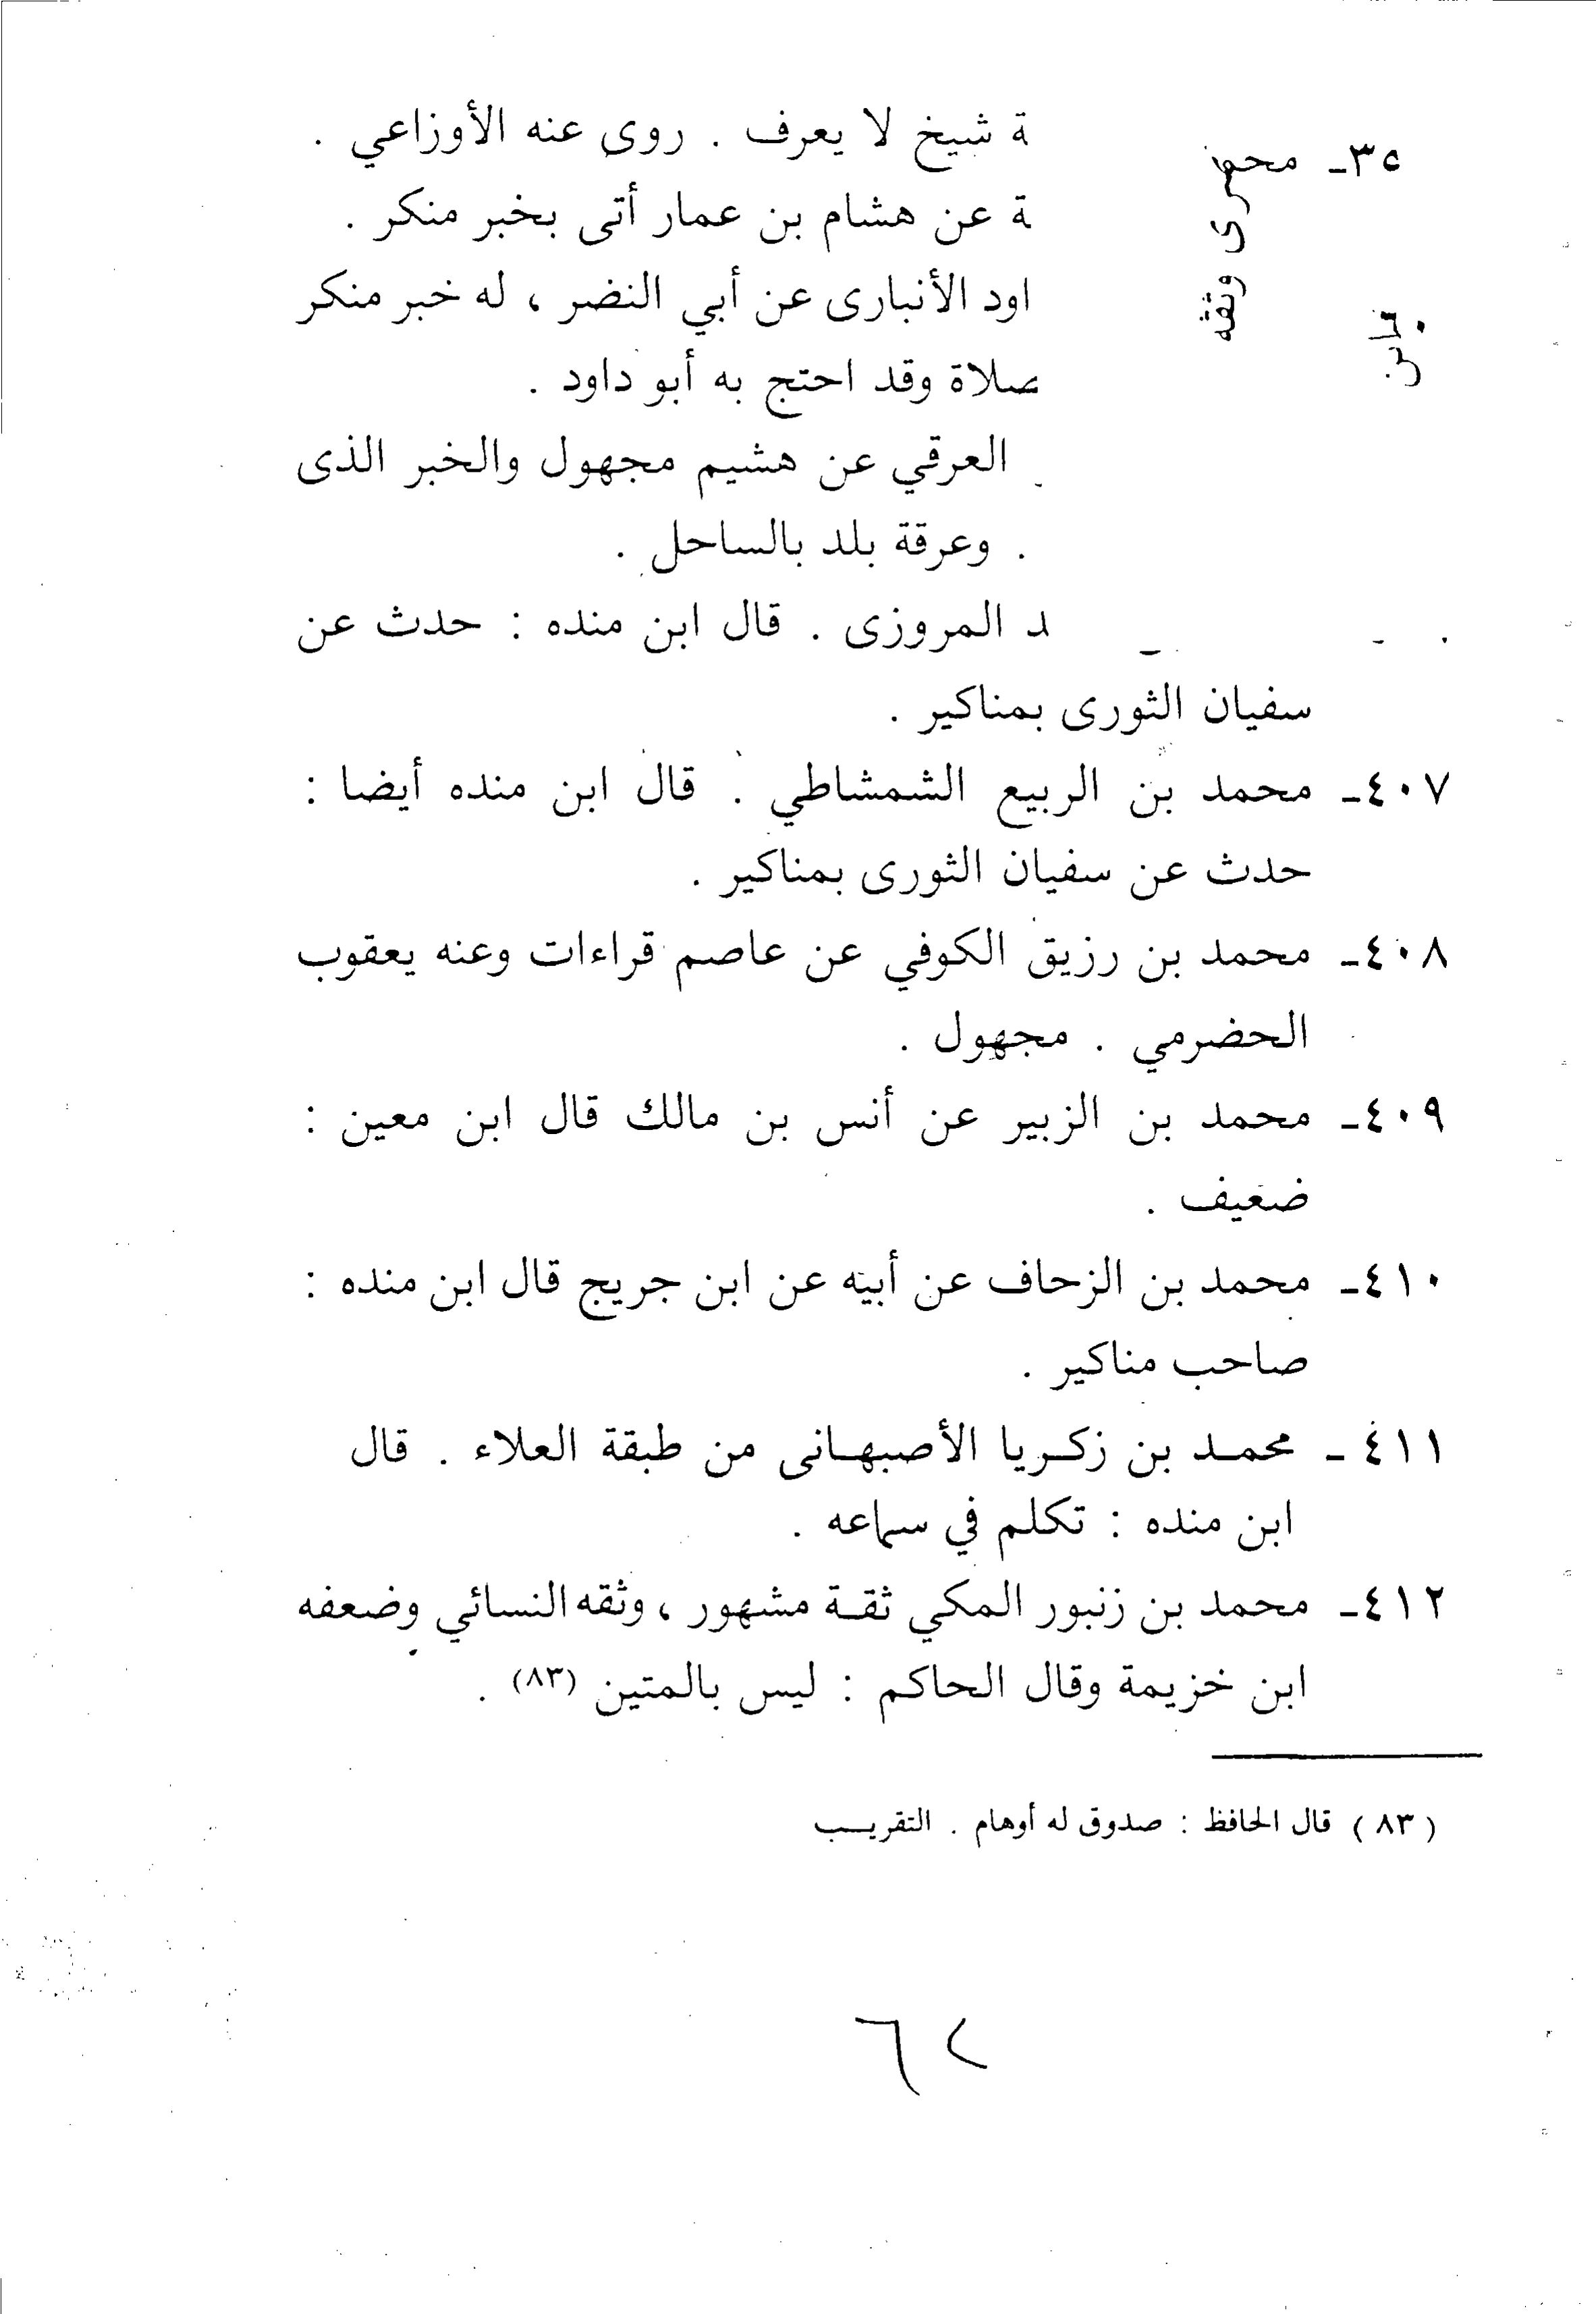 ة شيخ لا يعرف . روى عنه الأوزاعي .
٣٥ـ
ة عن هشام بن عمار أتى بخبر منكر .
وثقه
اود الأنبارى عن أبي النضر ، له خبر منكر
صلاة وقد احتج به أبو داود .
العرقي عن هشيم مجهول والخبر الذى
. وعرقة بلد بالساحل .
د المروزى . قال ابن منده : حدث عن
سفيان الثورى بمناكير .
٤٠٧ـ محمد بن الربيع الشمشاطي . قال ابن منده أيضا :
حدث عن سفيان الثورى بمناكير .
٤٠٨ـ محمد بن رزيق الكوفي عن عاصم قراءات وعنه يعقوب
الحضرمي . مجهول .
٤٠٩ـ محمد بن الزبير عن أنس بن مالك قال ابن معين :
ضعيف .
٤١٠ـ محمد بن الزحاف عن أبيه عن ابن جريج قال ابن منده :
صاحب مناكير .
٤١١ ـ محمـد بن زكـريا الأصبهـانى من طبقة العلاء . قال
ابن منده : تكلم في سماعه .
٤١٢ـ محمد بن زنبور المكي ثقـة مشهور ، وثقه النسائي وضعفه
ابن خزيمة وقال الحاكم : ليس بالمتين (٨٣) .
( ٨٣ ) قال الحافظ : صدوق له أوهام . التقريـب
٦٢